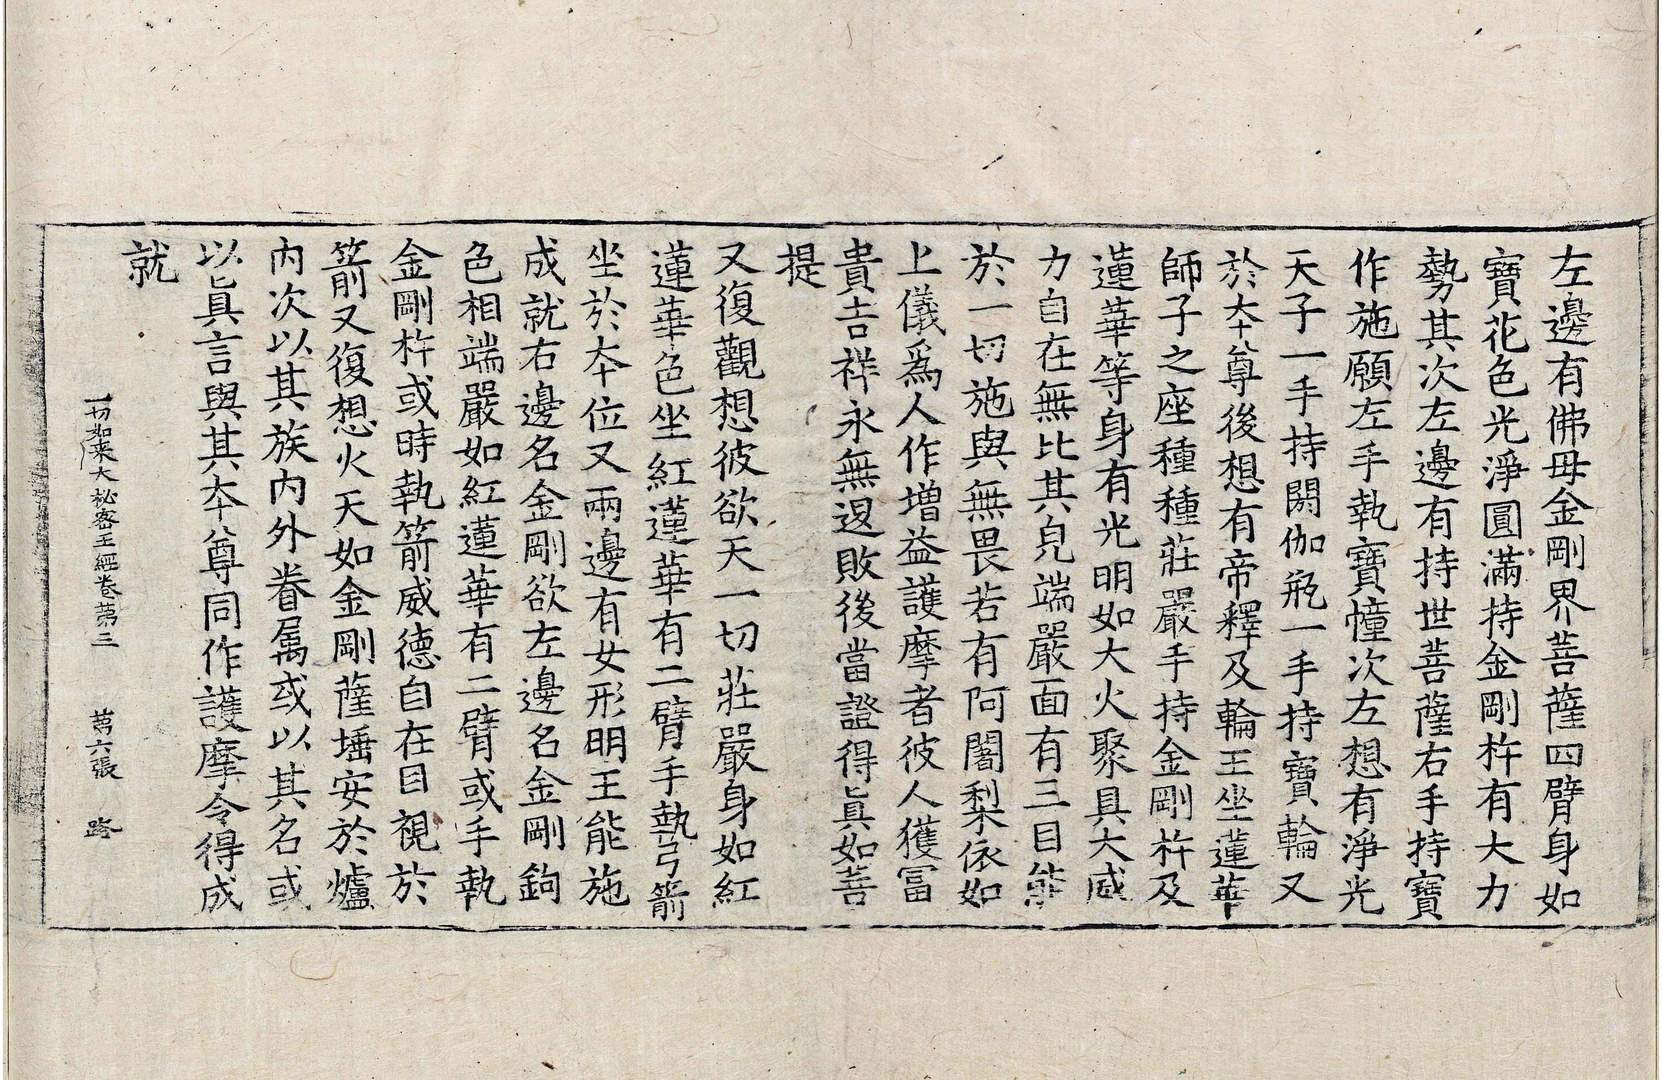 左邊有佛母金剛界菩薩四臂身如
寶花色光淨圓滿持金剛杵有大力
勢其次左邊有持世菩薩右手持寶
作施願左手執寶幢次左想有淨光
天子一手持閼伽甁一手持寶輪又
於夲尊後想有帝釋及輪王坐蓮華
師子之座種種莊嚴手持金剛杵及
蓮華等身有光明如大火聚具大威
力自在無比其皃端嚴面有三目能
於一切施與無畏若有阿闍梨依如
上儀爲人作增益護摩者彼人獲冨
貴吉祥永無退敗後當證得眞如菩
提
又復觀想彼欲天一切莊嚴身如紅
蓮華色坐紅蓮華有二臂手執弓箭
坐於夲位又兩邊有女形明王能施
成就右邊名金剛欲左邊名金剛鉤
色相端嚴如紅蓮華有二臂或手執
金剛杵或時執箭威德自在目視於
箭又復想火天如金剛薩埵安於爐
內次以其族內外眷属或以其名或
以眞言與其夲尊同作護摩令得成
就
一切如来大秘密王經卷苐三 苐六張 路